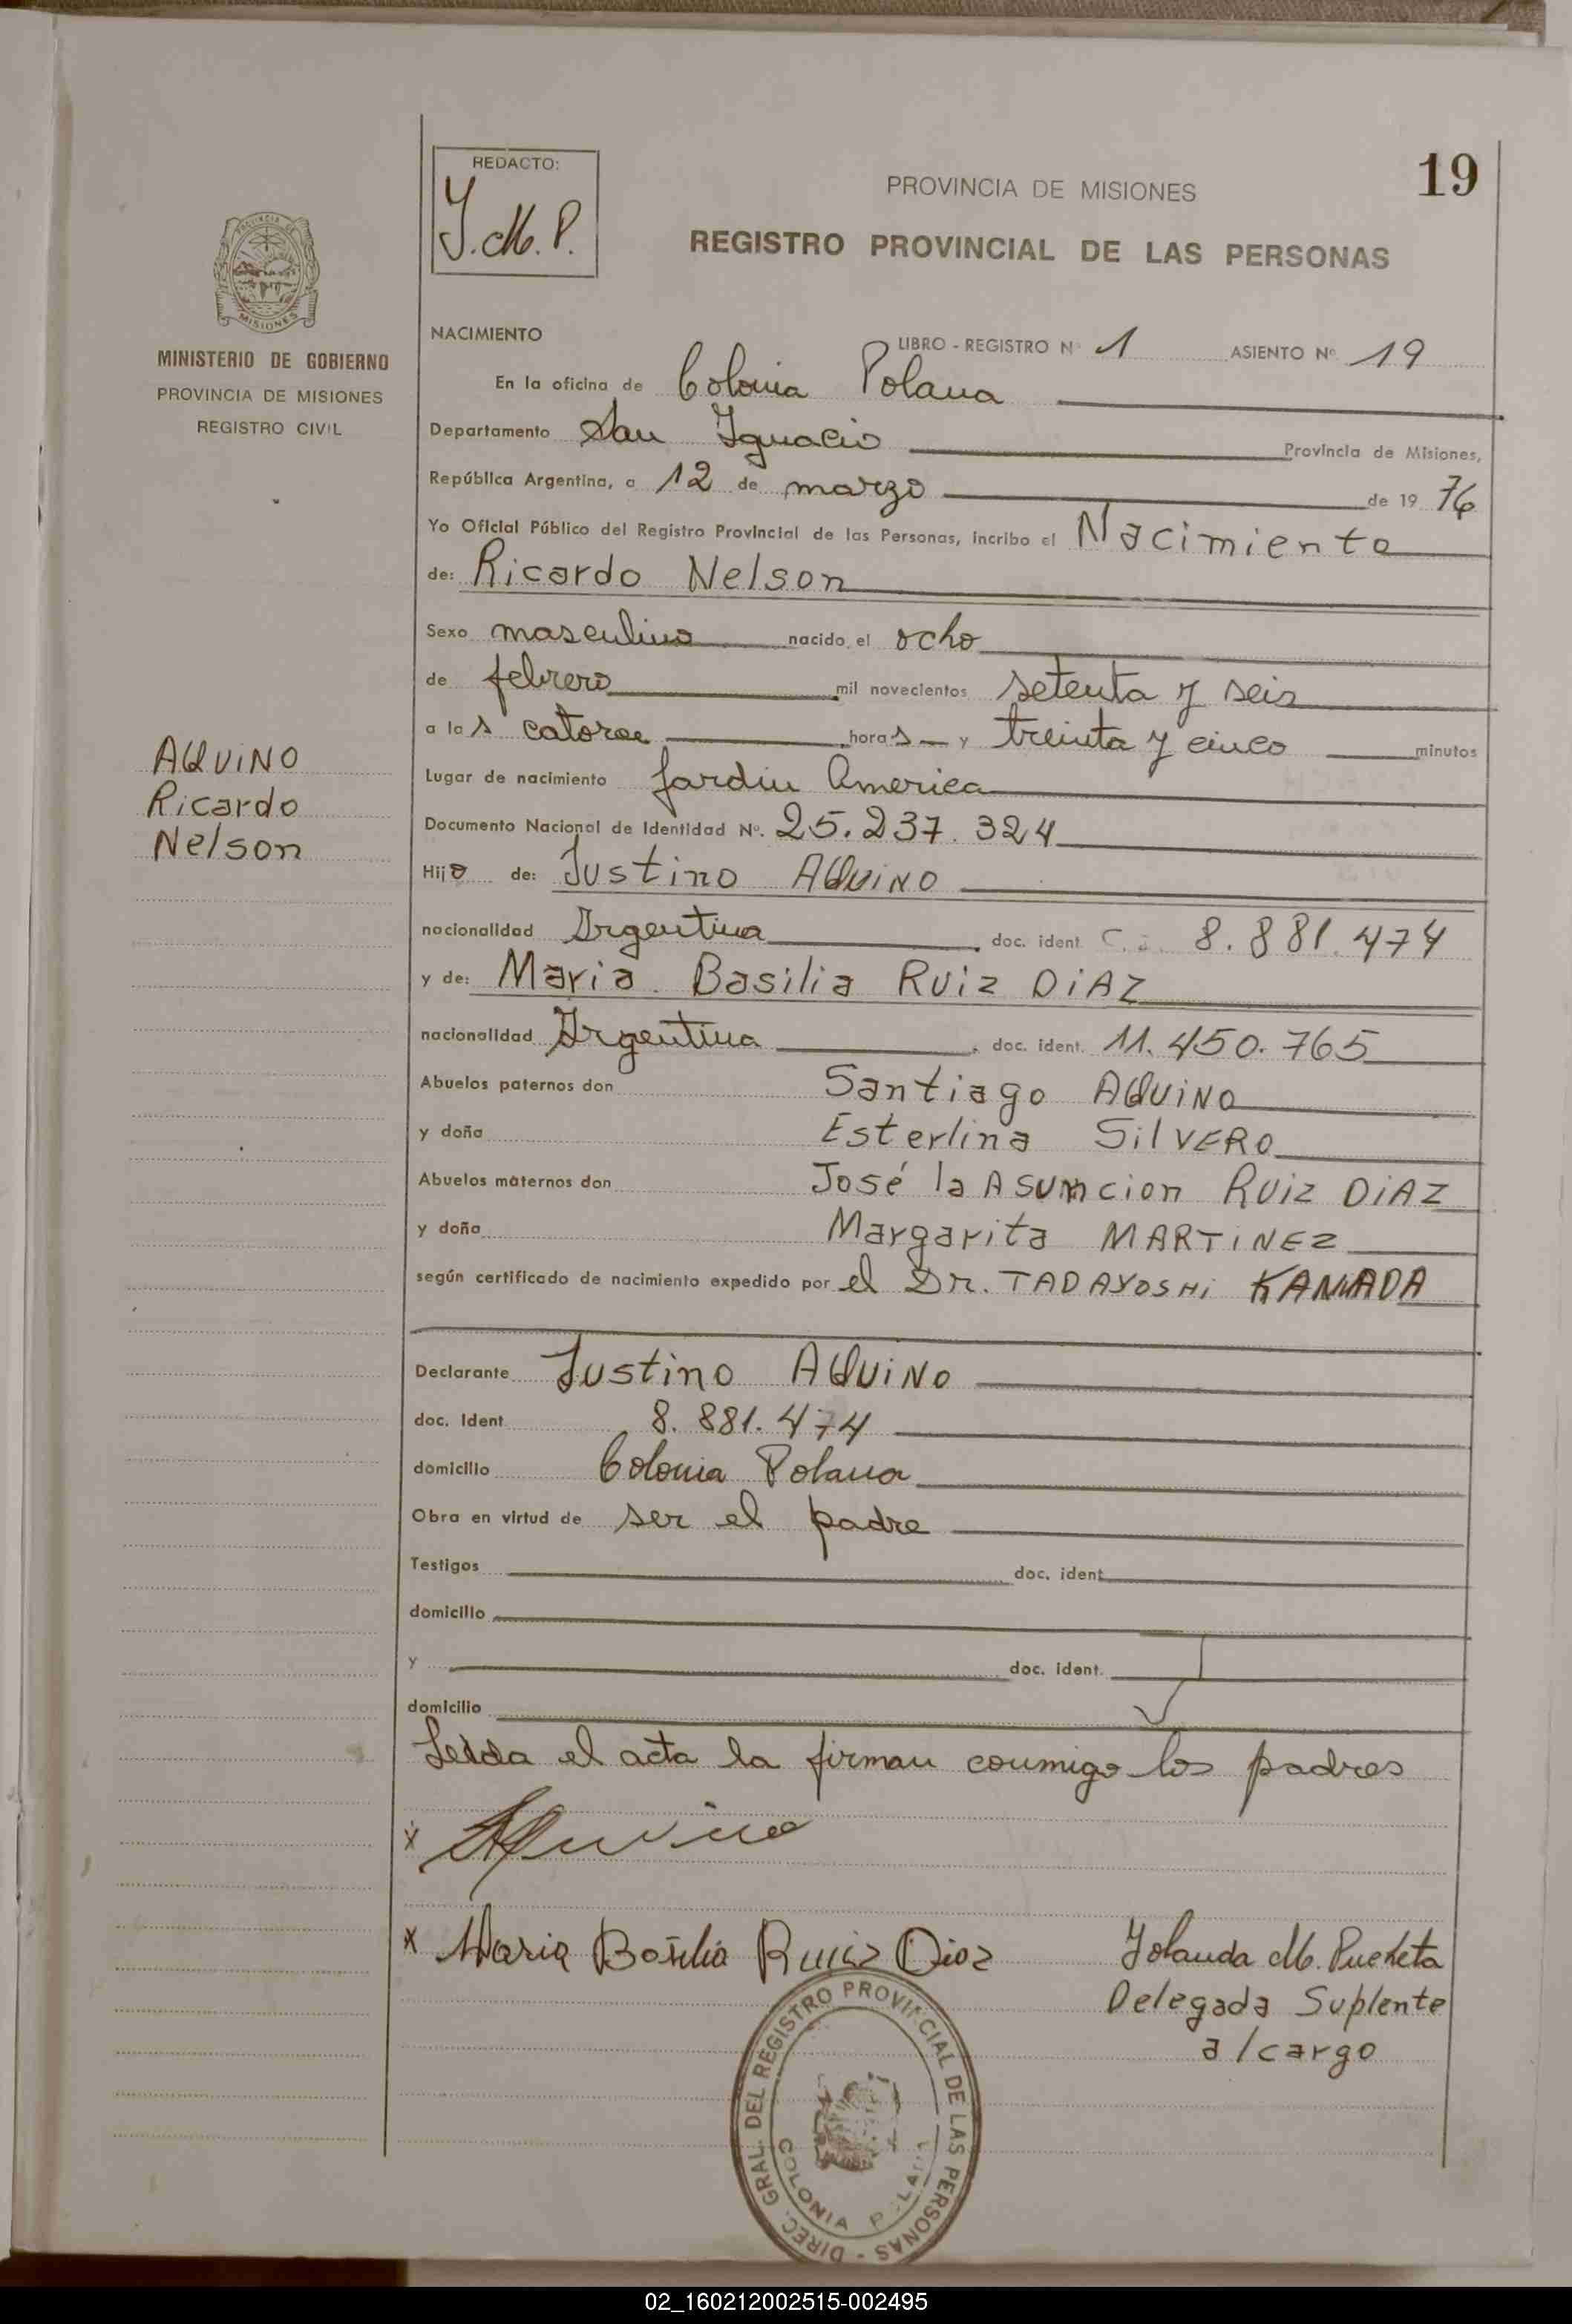 19
REDACTO:
Y.M.P.
PROVINCIA DE MISIONES
REGISTRO PROVINCIAL DE LAS PERSONAS
PROVINCIA DE
MISIONES
MINISTERIO DE GOBIERNO
PROVINCIA DE MISIONES
REGISTRO CIVIL
NACIMIENTO
LIBRO - REGISTRO Nº 1 ASIENTO Nº 19
En la oficina de Colonia Polana
Departamento San Ignacio Provincia de Misiones,
República Argentina, a 12 de marzo de 19 76
Yo Oficial Público del Registro Provincial de las Personas, incribo el Nacimiento
de: Ricardo Nelson
Sexo masculino nacido el ocho
de febrero mil novecientos setenta y seis
a las catorce horas y treinta y cinco minutos
AQUINO
Ricardo
Nelson
Lugar de nacimiento Jardin America
Documento Nacional de Identidad Nº. 25.237.324
Hijo de: Justino AQUINO
nacionalidad Argentina doc. ident. 8.881.474
y de: Maria Basilia RUiz DiAZ
nacionalidad Argentina, doc. ident. 11.450.765
Abuelos paternos don Santiago AQUiNO
y doña Esterlina SilVERO
Abuelos maternos don José la Asuncion RUiz DiAZ
y doña Margarita MARTiNEZ
según certificado de nacimiento expedido por el Dr. TADAYOSHi
Declarante Justino AQUiNO
doc. Ident. 8.881.474
domicilio Colonia Polana
Obra en virtud de ser el padre
Testigos doc. ident.
domicilio
y doc. ident.
domicilio
Leida el acta la firman conmigo los padres
x Aquino
x Maria Basilia Ruiz Diaz
Yolanda M. Pucheta
Delegada Suplente
a/cargo
DIREC. GRAL. DEL REGISTRO PROVINCIAL DE LAS PERSONAS -
COLONIA POLANA
02_160212002515-002495